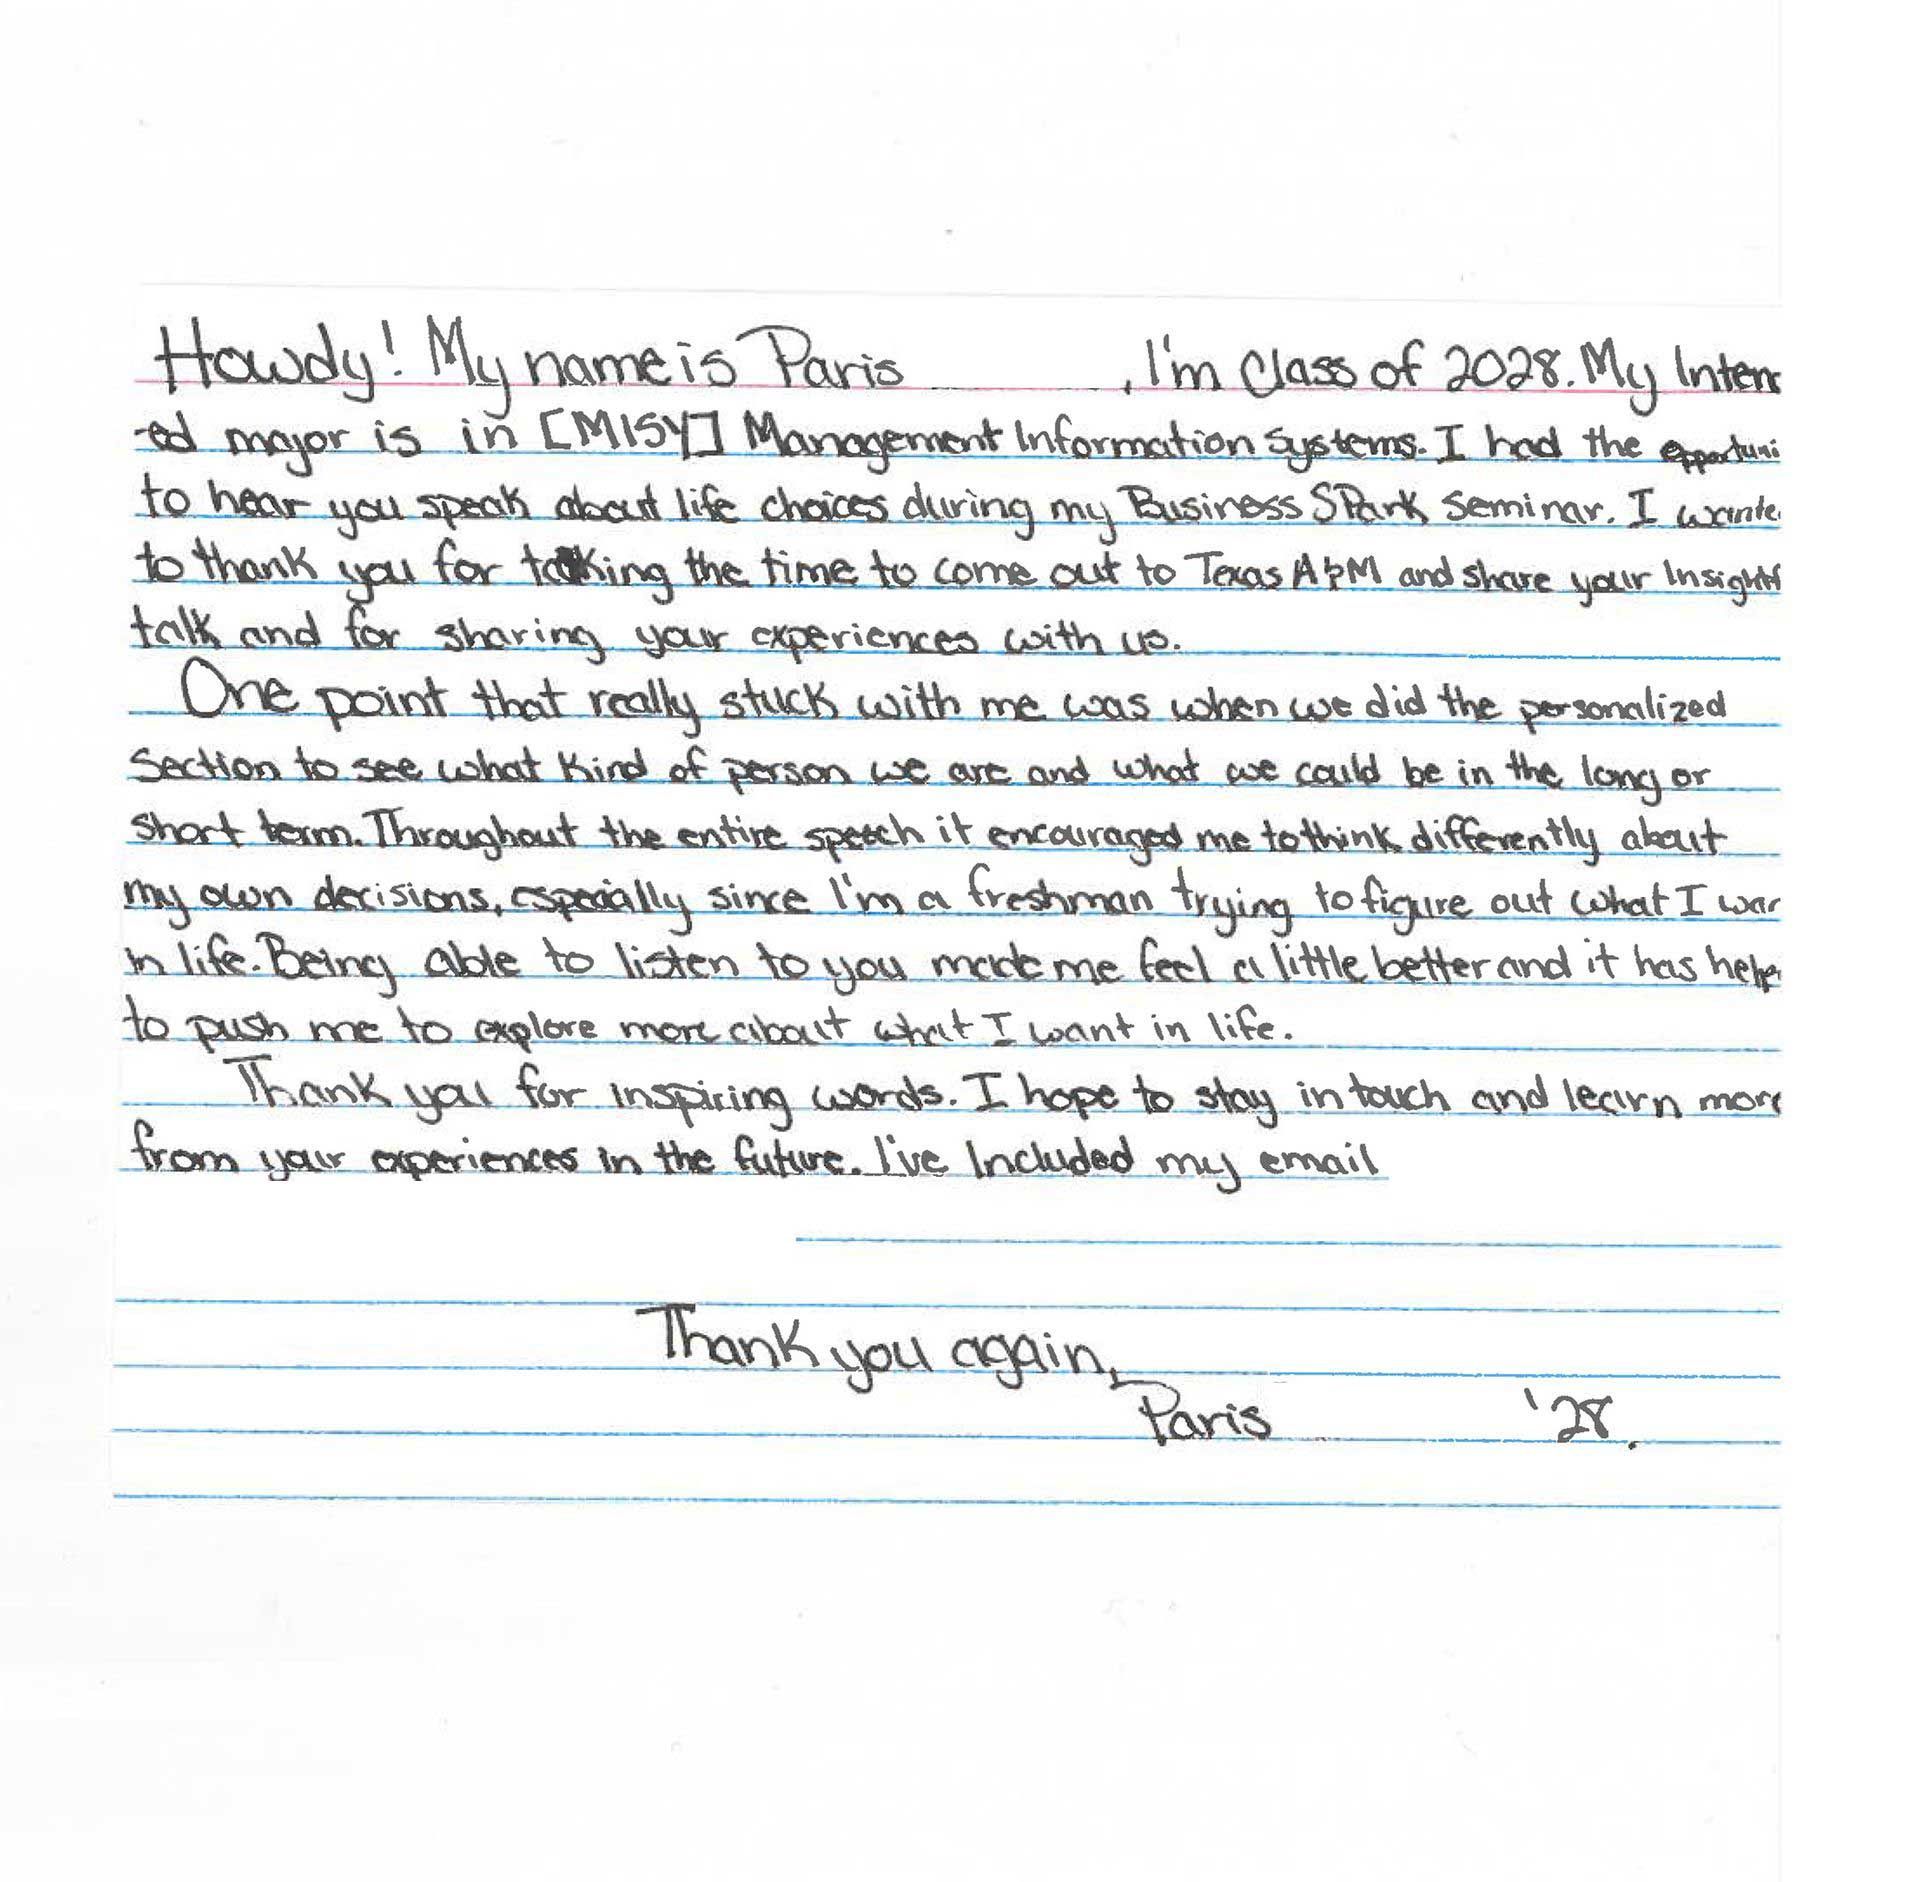 Howdy! My name is Paris , I'm Class of 2028. My Inten
-ed major is in [MISY] Management Information Systems. I had the opportuni
to hear you speak about life choices during my Business SPark Seminar. I wante
to thank you for taking the time to come out to Texas A&M and share your Insightf
talk and for sharing your experiences with us.
One point that really stuck with me was when we did the personalized
Section to see what kind of person we are and what we could be in the long or
short term. Throughout the entire speech it encouraged me to think differently about
my own decisions, especially since I'm a freshman trying to figure out what I wan
in life. Being able to listen to you made me feel a little better and it has helpe
to push me to explore more about what I want in life.
Thank you for inspiring words. I hope to stay in touch and learn more
from your experiences in the future. I've Included my email
Thank you again,
Paris '28.